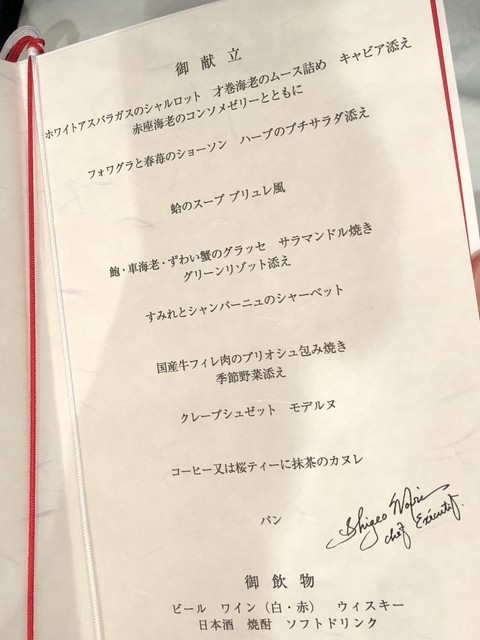 御献立
ホワイトアスパラガスのシャルロット　才巻海老のムース詰め　キャビア添え
赤座海老のコンソメゼリーとともに
フォワグラと春苺のショーソン　ハーブのプチサラダ添え
蛤のスープ ブリュレ風
鮑・車海老・ずわい蟹のグラッセ　サラマンドル焼き
グリーンリゾット添え
すみれとシャンパーニュのシャーベット
国産牛フィレ肉のブリオシュ包み焼き
季節野菜添え
クレープシュゼット　モデルヌ
コーヒー又は桜ティーに抹茶のカヌレ
パン
Shigeo
chef Exécutif.
御飲物
ビール　ワイン（白・赤）　ウィスキー
日本酒　焼酎　ソフトドリンク